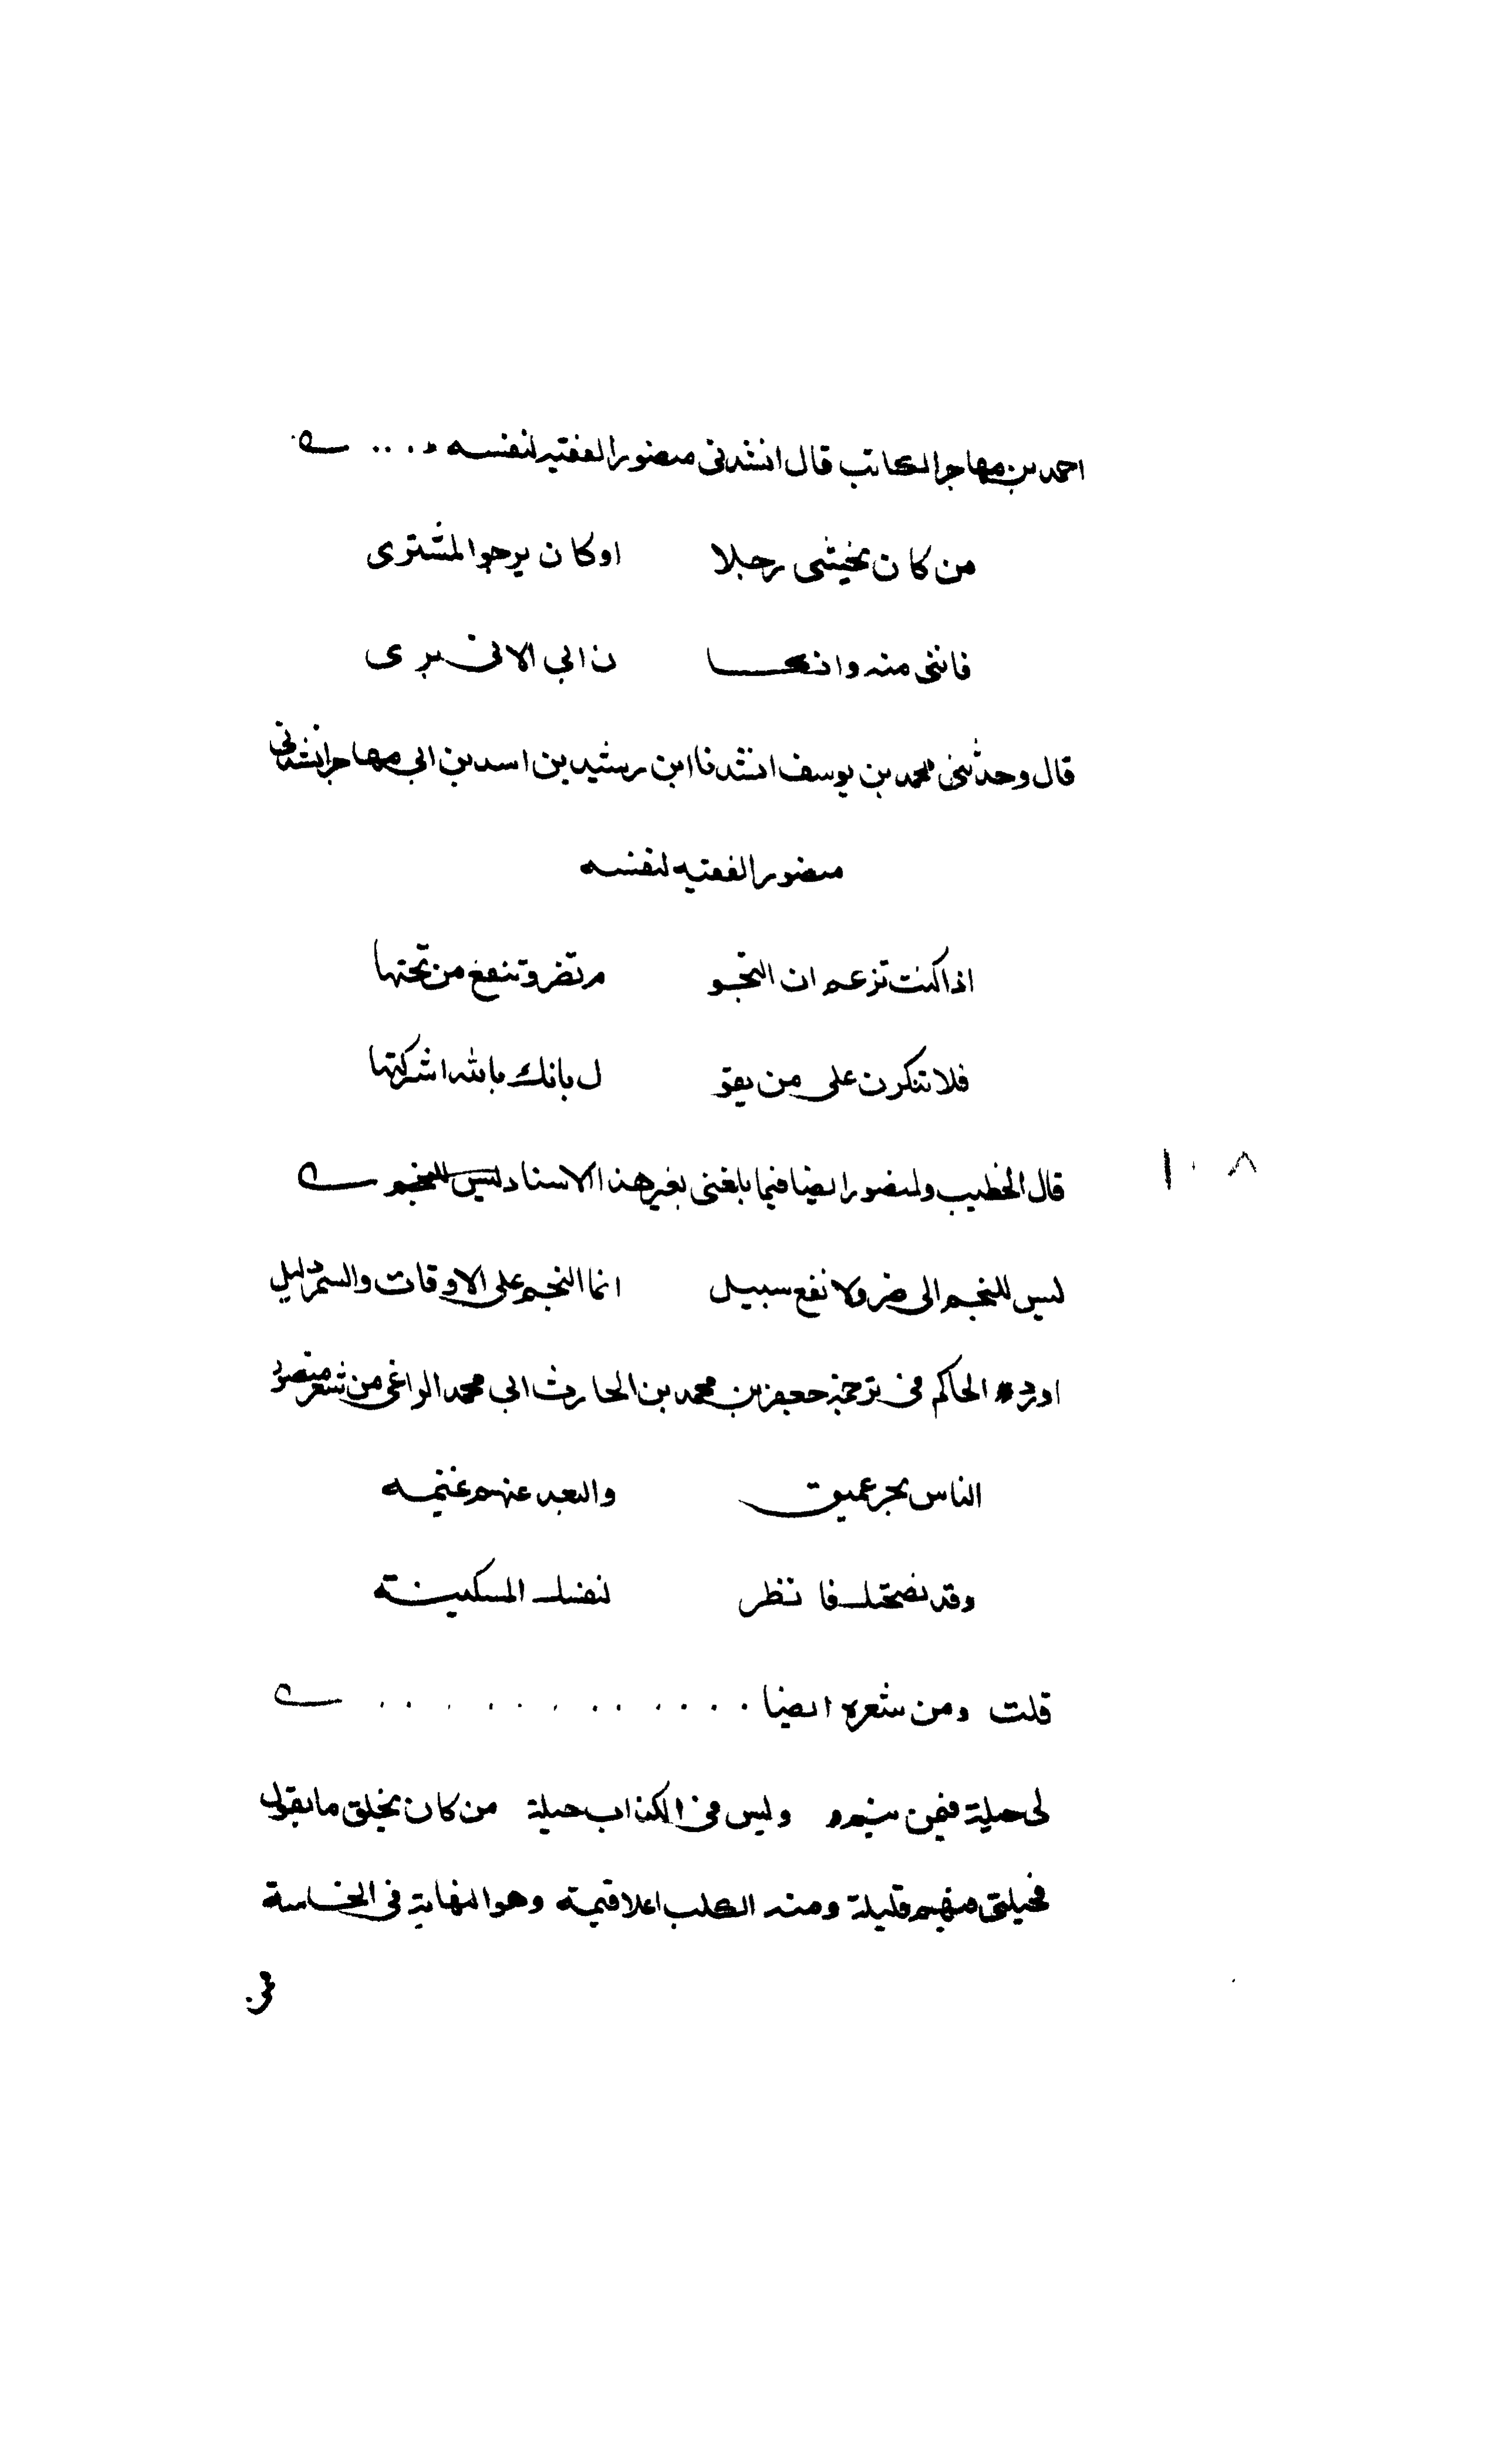 احمد بن مهاجر الكاتب قال انشدنى منصور الفقيه لنفسه
من كان يخشى زحلا او كان يرجو المشترى
فاننى منه وان كا ن ابى الادنى برى
قال وحدثنى محمد بن يوسف انشدنا ابن رشيد بن اسد بن ابى مهاجر انشدنى
منصور الفقيه لنفسه
اذا كنت تزعم ان النجو م تضر وتنفع من تحتها
فلا تنكرن على من يقو ل بانك بالله اشركتها
١٠٨ قال الخطيب ولمنصور ايضا فيما بلغنى بغير هذا الاسناد ليس للنجم
ليس للنجم الى ضر ولا نفع سبيل انما النجم على الاوقات والسمت دليل
اورده الحاكم فى ترجمة جعفر بن محمد بن الحارث ابى محمد الراغى من شعر منصور
الناس بحر عميق والبعد عنهم غنيمه
وقد نصحتك فانظر لنفسك المسكينة
قلت ومن شعره ايضا . . . . . . . . . . . .
لى حيلة فيمن ينم وليس فى الكذاب حيلة من كان يخلق ما يقول
فحيلتى فيهم قليلة ومنه الكلب اعلا قيمة وهو النهاية فى الخساسة